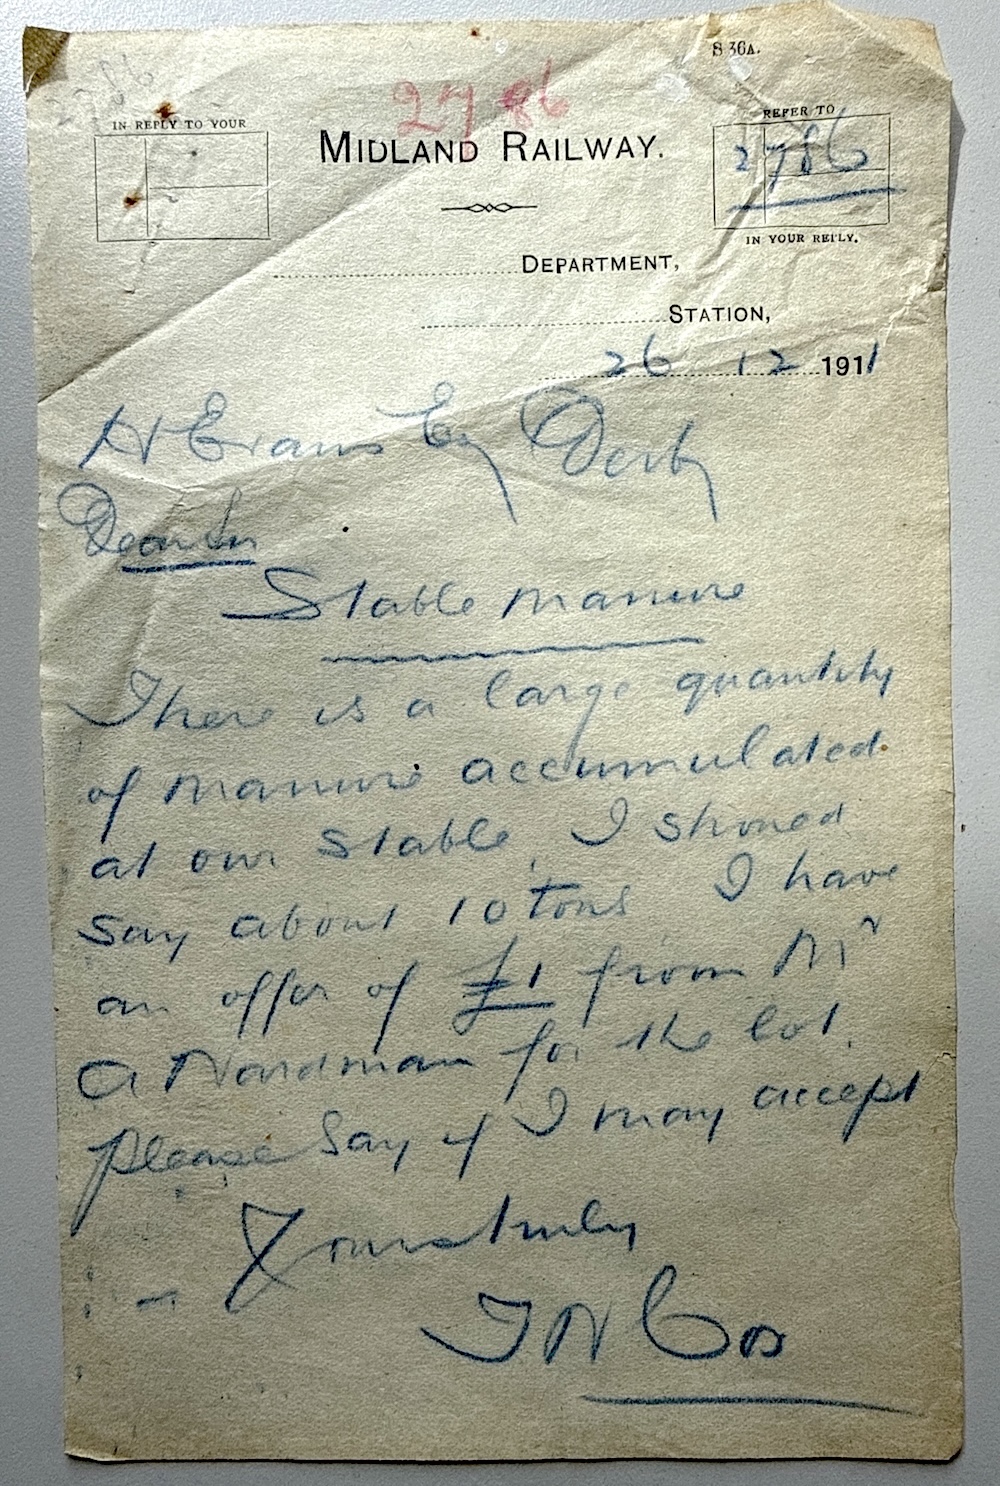 S 36A.
2786
IN REPLY TO YOUR
REFER TO
MIDLAND RAILWAY.
2786
IN YOUR REPLY.
DEPARTMENT,
STATION,
26 12 1911
H Evans Esq Derby
Dear Sir
Stable Manure
There is a large quantity
of manure accumulated
at our stable, I shoued
say about 10 tons I have
an offer of £1 from Mr
A Nordman for the lot.
please say if I may accept
Yours truly
Cox